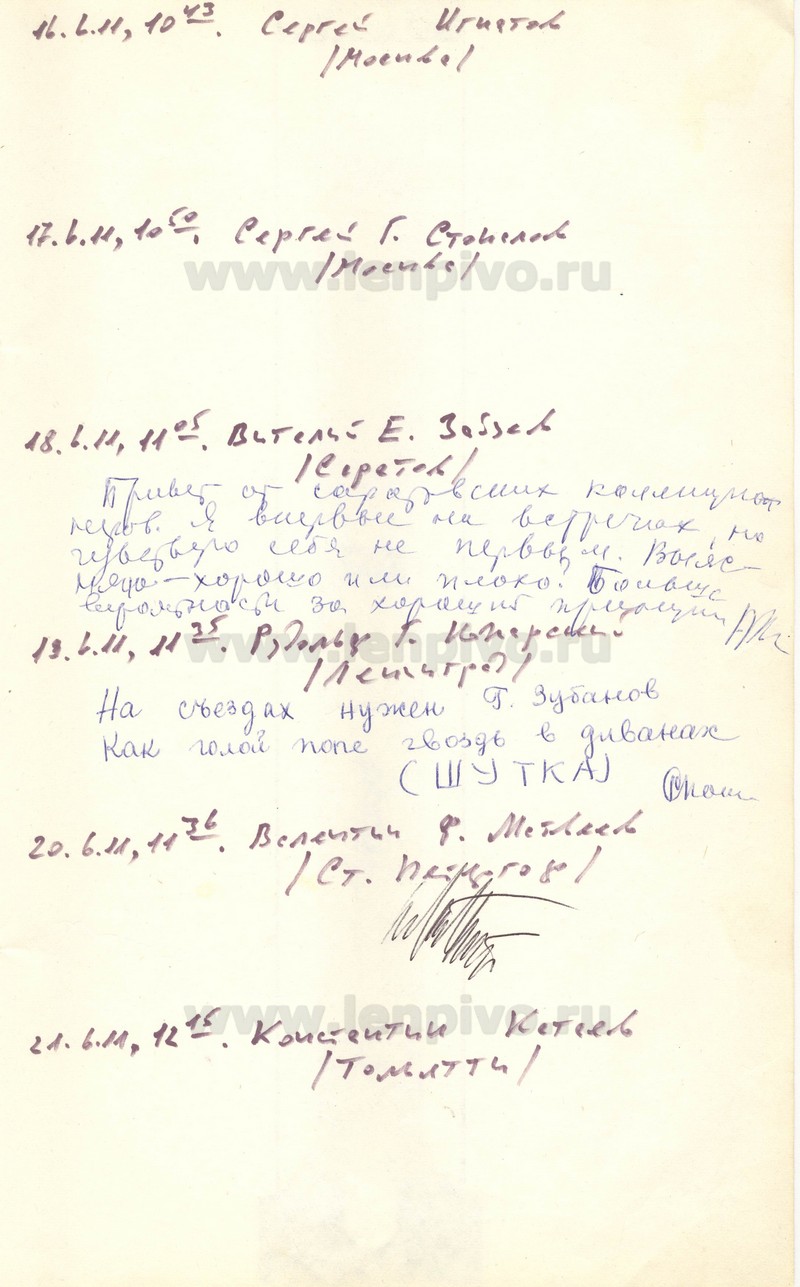 16. 6. 11, 10 43. Сергей Игнатов
/Москва/
17. 6. 11, 10 50. Сергей Г. Стопелов
www.lenpivo.ru
/Москва/
18. 6. 11, 11 05. Виталий Е.
/Саратов/
Привет от саратовских коллекцио-
неров. Я впервые на встречах, но
чувствую себя не первым. Выяс-
хорошо или плохо. Больше
вероятности за хороший
www.lenpivo.ru
19. 6. 11, 11 35. Рудольф Г.
/Ленинград/
На съездах нужен Г. Зубанов
Как голой попе гвоздь в диванах
(ШУТКА)
20. 6. 11, 11 36. Валентин Ф. Матвеев
/Ст. Петергоф/
www.lenpivo.ru
21. 6. 11, 12 15. Константин Катаев
/Тольятти/